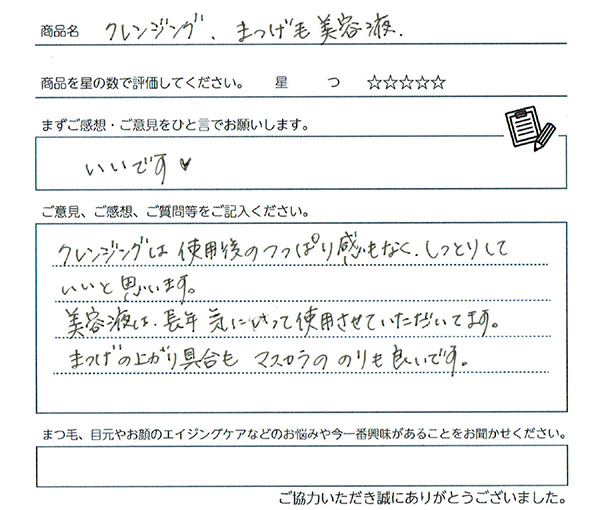 商品名 クレンジング、まつげ毛美容液.
商品を星の数で評価してください。 星 つ ☆☆☆☆☆
まずご感想・ご意見をひと言でお願いします。
いいです♥
ご意見、ご感想、ご質問等をご記入ください。
クレンジングは 使用後のつっぱり感もなく、しっとりして
いいと思います。
美容液は、長年 気に入って使用させていただいてます。
まつげの上がり具合も マスカラの のりも良いです。
まつ毛、目元やお顔のエイジングケアなどのお悩みや今一番興味があることをお聞かせください。
ご協力いただき誠にありがとうございました。